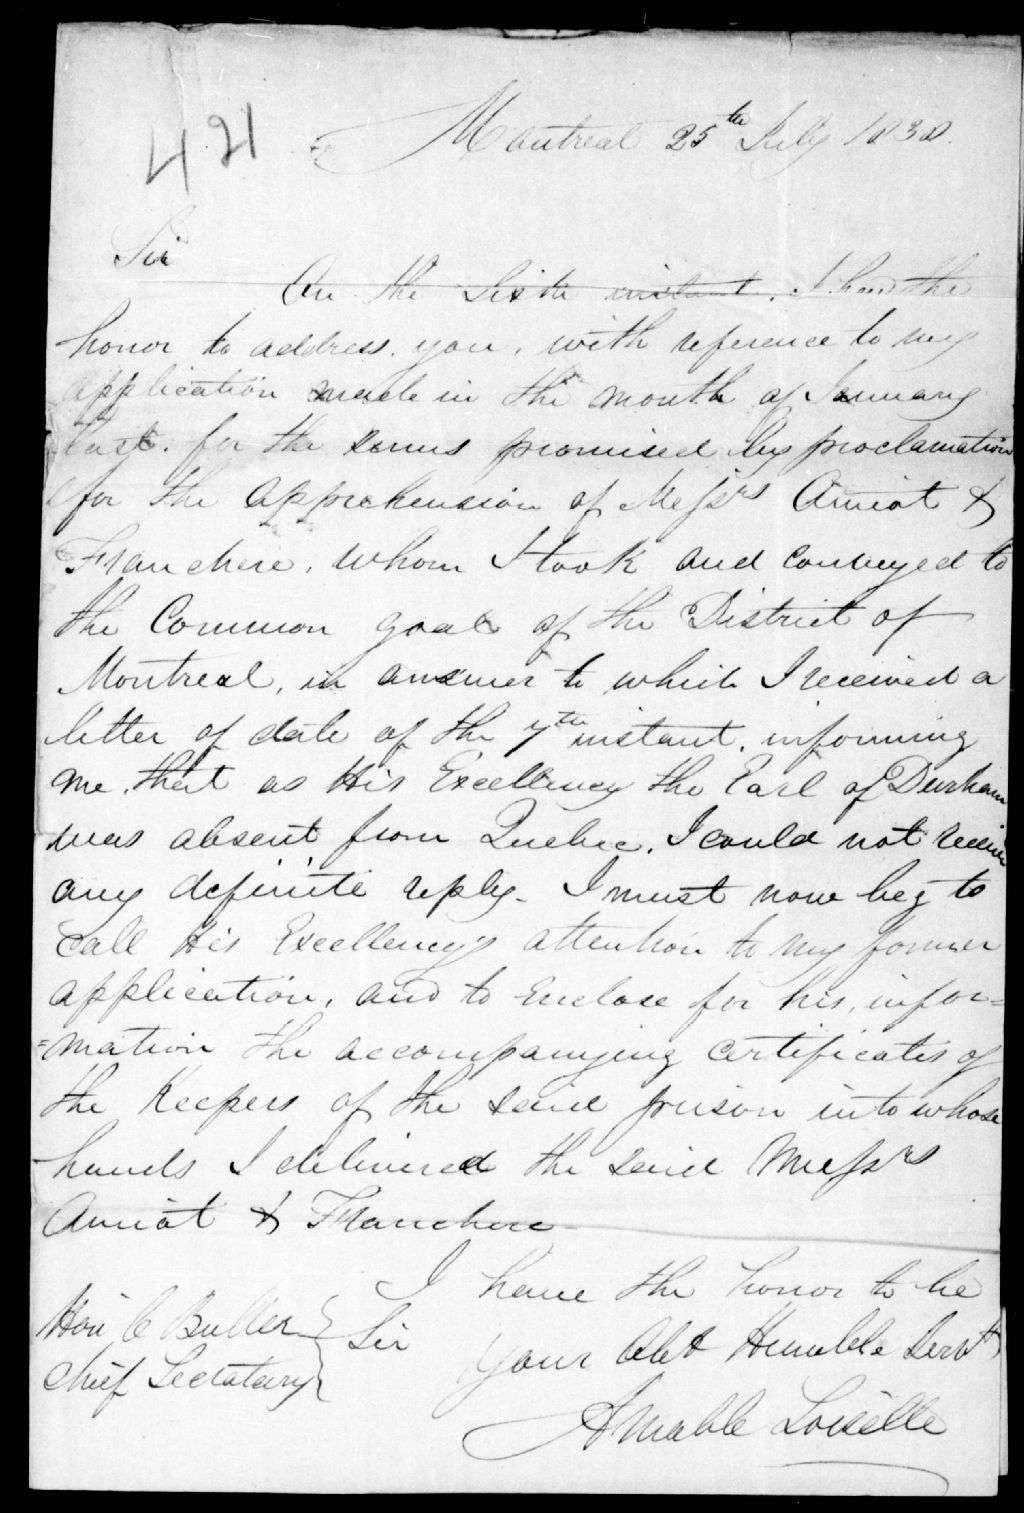 421
Montreal 25th July 1838.
Sir
On the Sixth instant, I had the
honor to address you, with reference to my
application made in the month of January
last. for the sums promised by proclamation
for the apprehension of Messrs Amiot &
Franchere, whom I took and conveyed to
the Common goal of the District of
Montreal, in answer to which I received a
letter of date of the 7th instant, informing
me, that as His Excellency the Earl of Durham
was absent from Quebec, I could not receive
any definite reply. I must now beg to
call His Excellency's attention to my former
application, and to enclose for his, infor=
=mation the accompanying certificates of
the Keepers of the said prison into whose
hands I delivered the said Messrs
Amiot & Franchere
I have the honor to be
Sir
your Obt Humble Servt
Amable Loiselle
Hon C Buller
Chief Sectatary